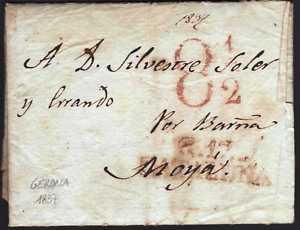 1837
8 1/2
A D. Silvestre Soler
y Errando
Por Barña
Moyá.
GERONA
1837